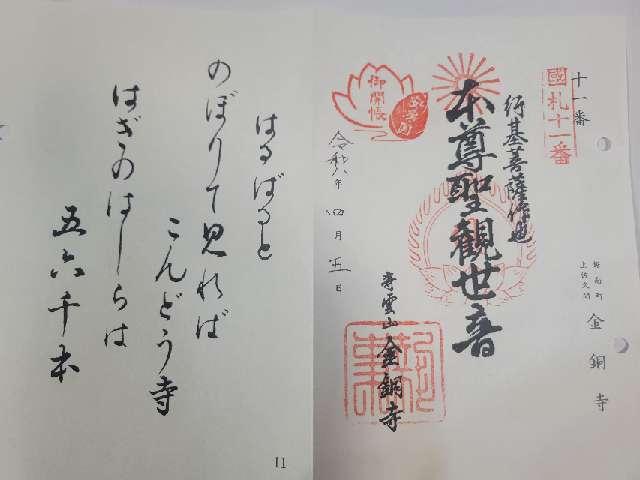 十一番
國札十一番
鋸南町
上佐久間
金銅寺
行基菩薩作也
本尊聖観世音
導雲山金銅寺
御開帳
令和八年四月五日
はるばると
のぼりて見れば
こんどう寺
はぎのはしらは
五六千本
11